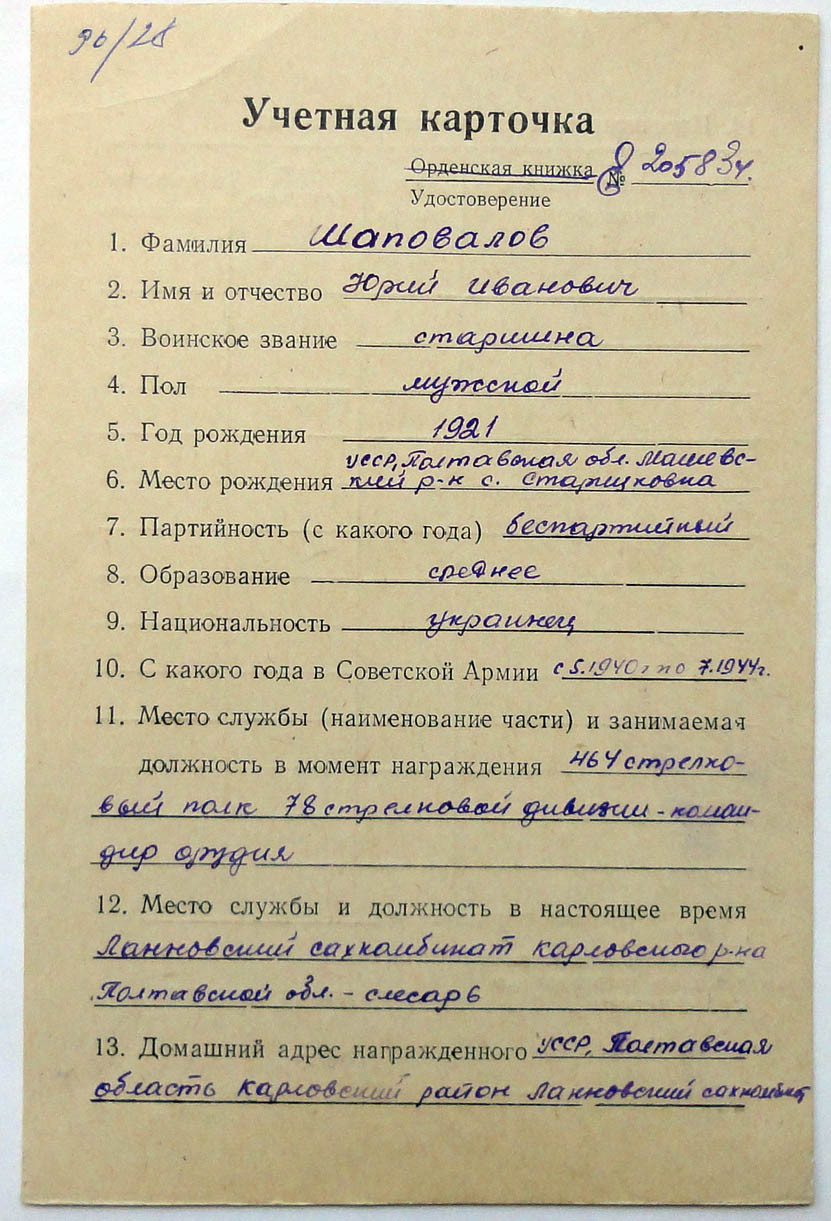 96/28
Учетная карточка
Орденская книжка № 205834.
Удостоверение
1. Фамилия Шаповалов
2. Имя и отчество Юрий Иванович
3. Воинское звание старшина
4. Пол мужской
5. Год рождения 1921
УССР, Полтавская обл. Машевс-
6. Место рождения кий р-н с. Старицковка
7. Партийность (с какого года) беспартийный
8. Образование среднее
9. Национальность украинец
10. С какого года в Советской Армии с 5.1940г по 7.1944г.
11. Место службы (наименование части) и занимаемая
должность в момент награждения 464 стрелко-
вый полк 78 стрелковой дивизии - коман-
дир орудия
12. Место службы и должность в настоящее время
Ланновский сахкомбинат Карловского р-на
Полтавской обл. - слесарь
13. Домашний адрес награжденного УССР, Полтавская
область Карловский район Ланновский сахкомбинат